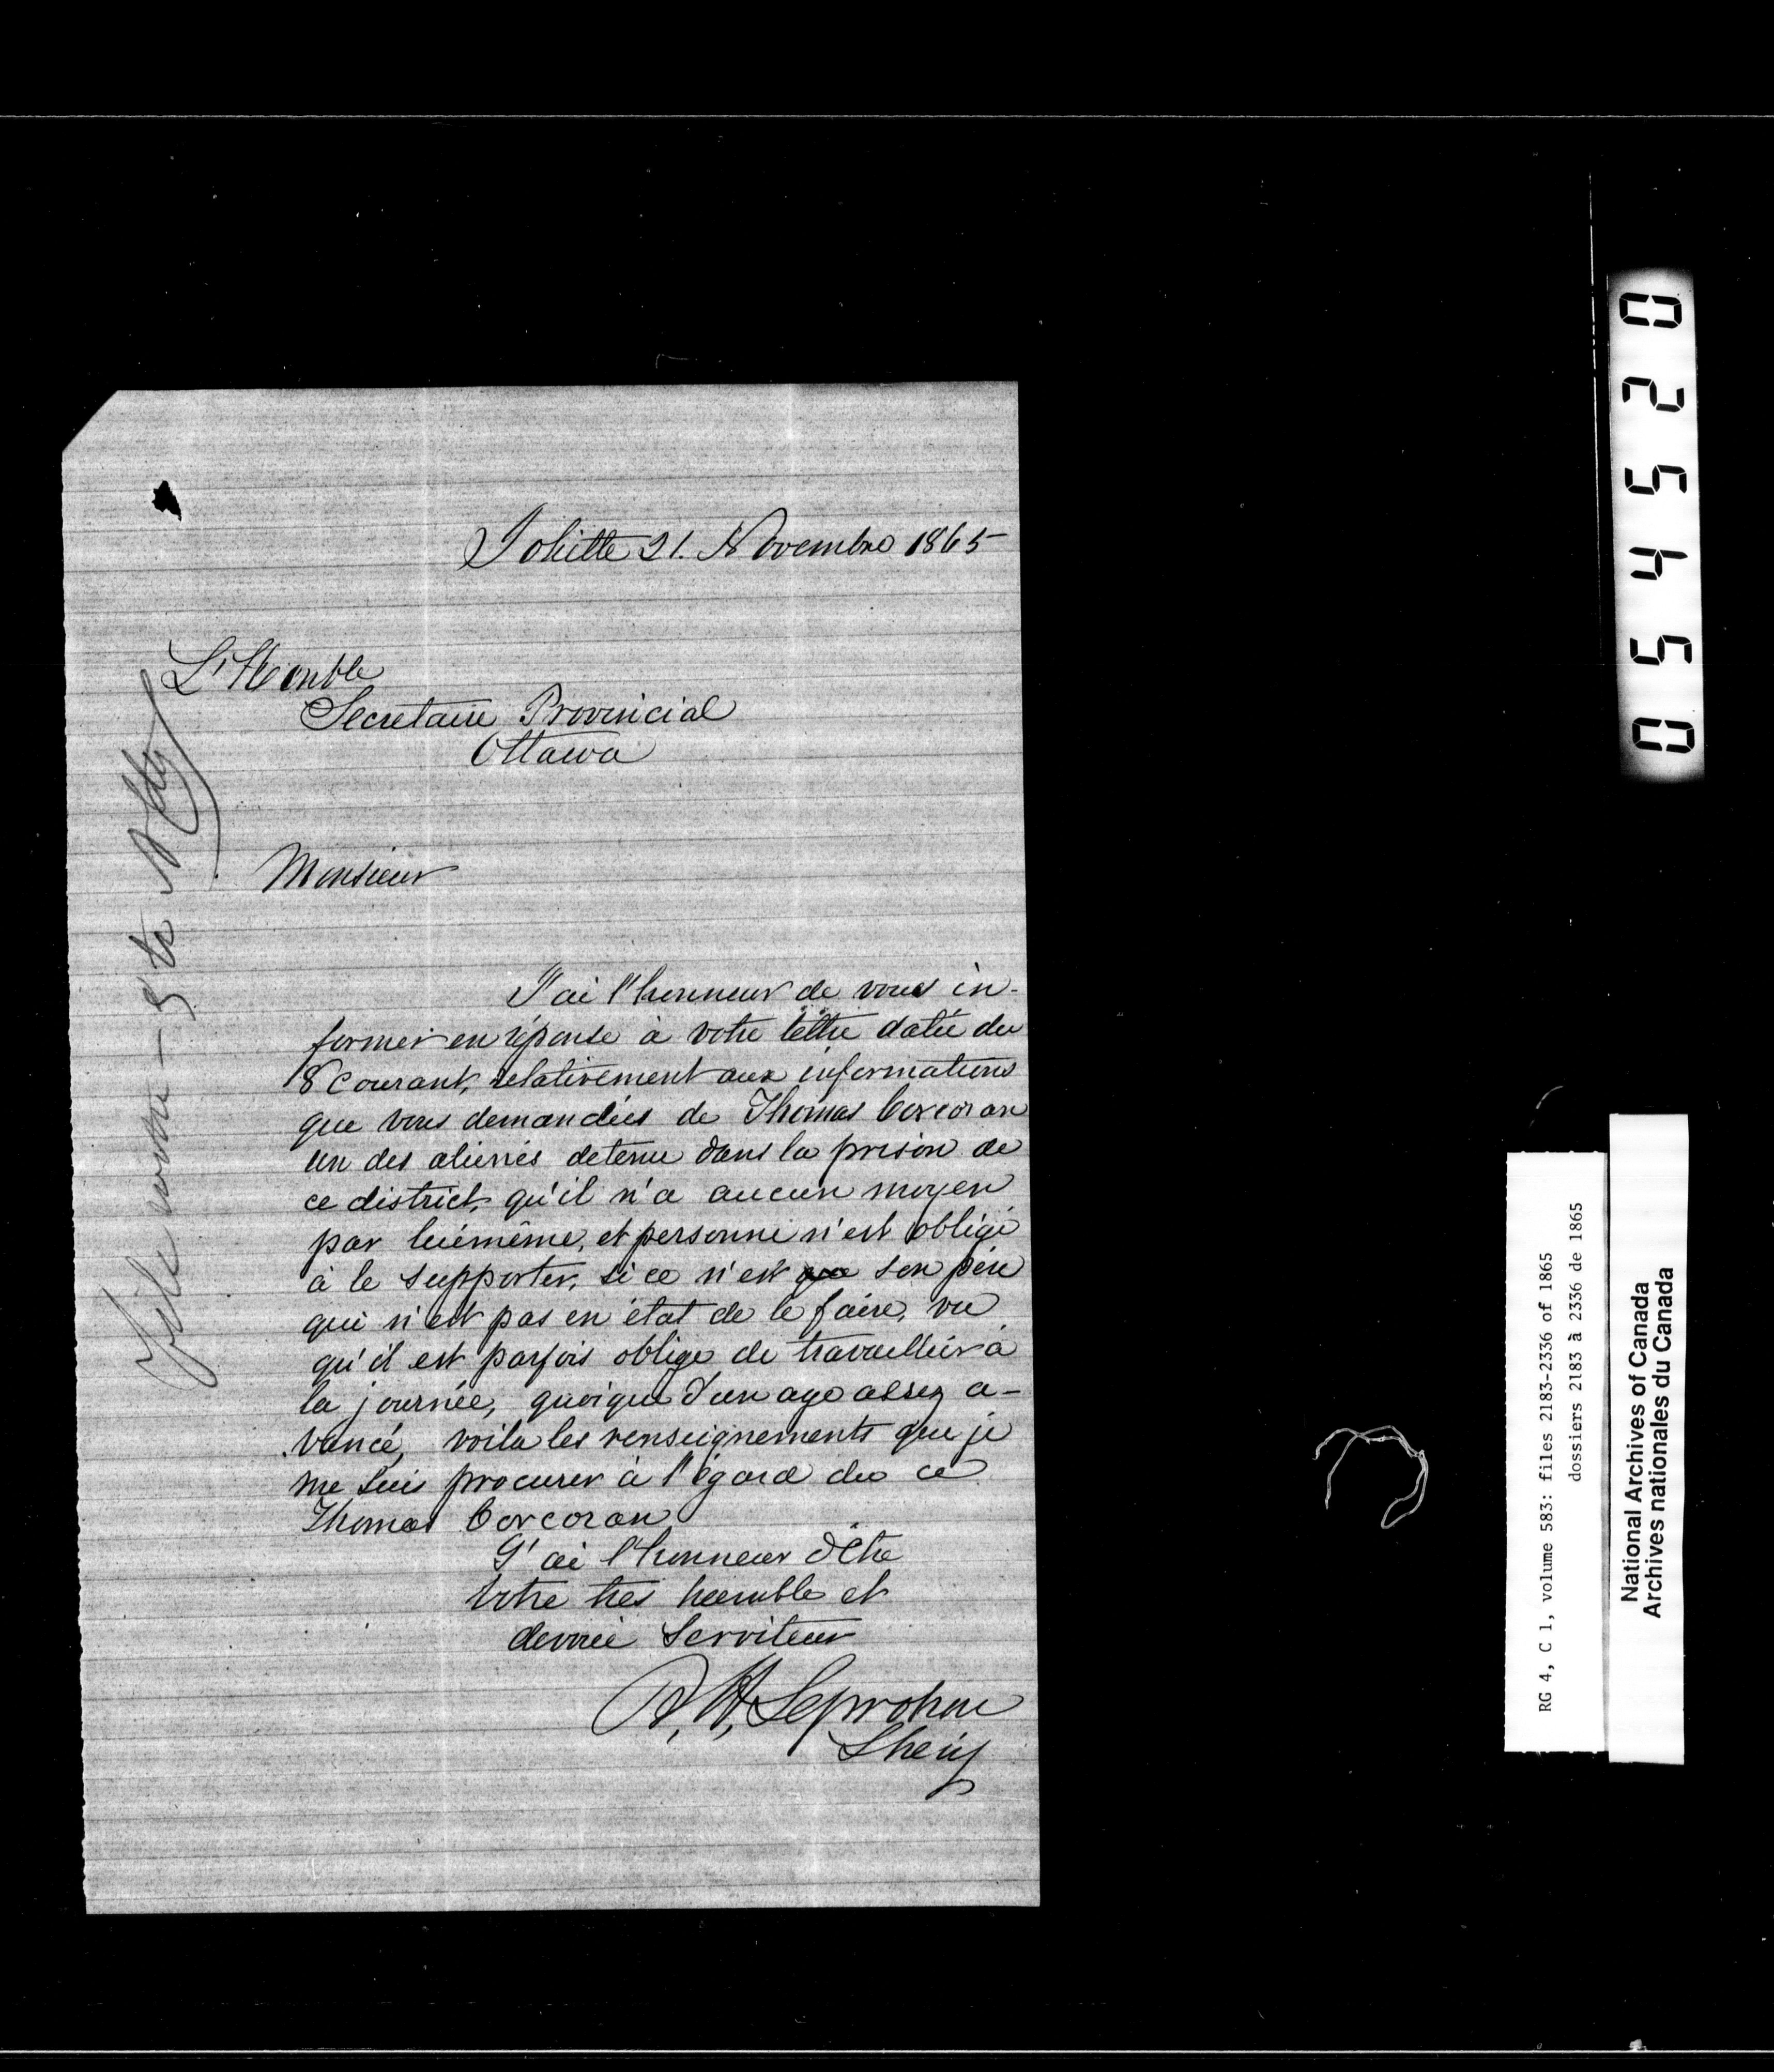 Joliette 21. Novembre 1865
L'Honble
Secretaire Provincial
Ottawa
Monsieur
J'ai l'honneur de vous in-
former en réponse à votre lettre datée du
8 Courant, relativement aux informations
que vous demandées de Thomas Corcoran
un des alienés detenu dans la prison de
ce district, qu'il n'a aucun moyen
par luimême, et personne n'est obligé
à le supporter, si ce n'est que son père
qui n'est pas en état de le faire, vu
qu'il est parfois obligé de travaillér à
la journée, quoique d'un age assez a-
vancé, voila les renseignements que je
me suis procurer à l'égard du ce
Thomas Corcoran
J'ai l'honneur d'être
Votre très humble et
devoué Serviteur
Leprohon
Sherif
File
0 5 4 5 2 0
RG 4, C 1, volume 583: files 2183-2336 of 1865
dossiers 2183 à 2336 de 1865
National Archives of Canada
Archives nationales du Canada